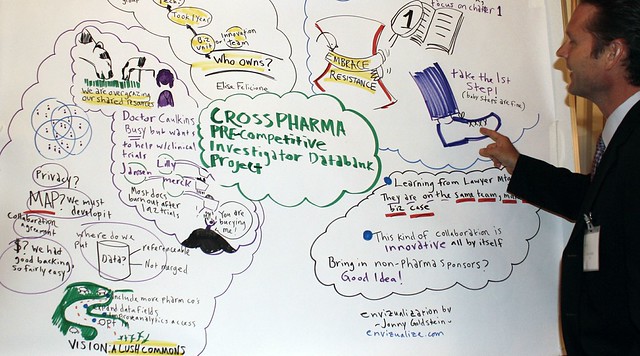 group
100k/year
Biz
unit
or
Innovation
team
Who owns?
Elisa Felicione
We are overgrazing
our shared resources
Doctor Caulkins
Busy but wants
to help w/clinical
trials
Lilly
Jansen
Merck
Most docs
burn out after
1 or 2 trials
You are
burying
me!
CROSSPHARMA
PRE-Competitive
Investigator Databank
Project
EMBRACE
RESISTANCE
1
focus on chapter 1
take the 1st
Step!
(baby steps are fine)
Privacy?
MAP?
We must
develop it
collaboration
agreement
$? We had
good backing
so fairly easy
where do we
put
Data?
referenceable
Not merged
include more pharm co's
expand data fields
analytics access
OPT in
VISION: A LUSH COMMONS
Learning from Lawyer
They are on the same team,
biz case
This kind of collaboration is
innovative all by itself
Bring in non-pharma sponsors?
Good Idea!
envizualization by
~Jonny Goldstein~
envizualize.com